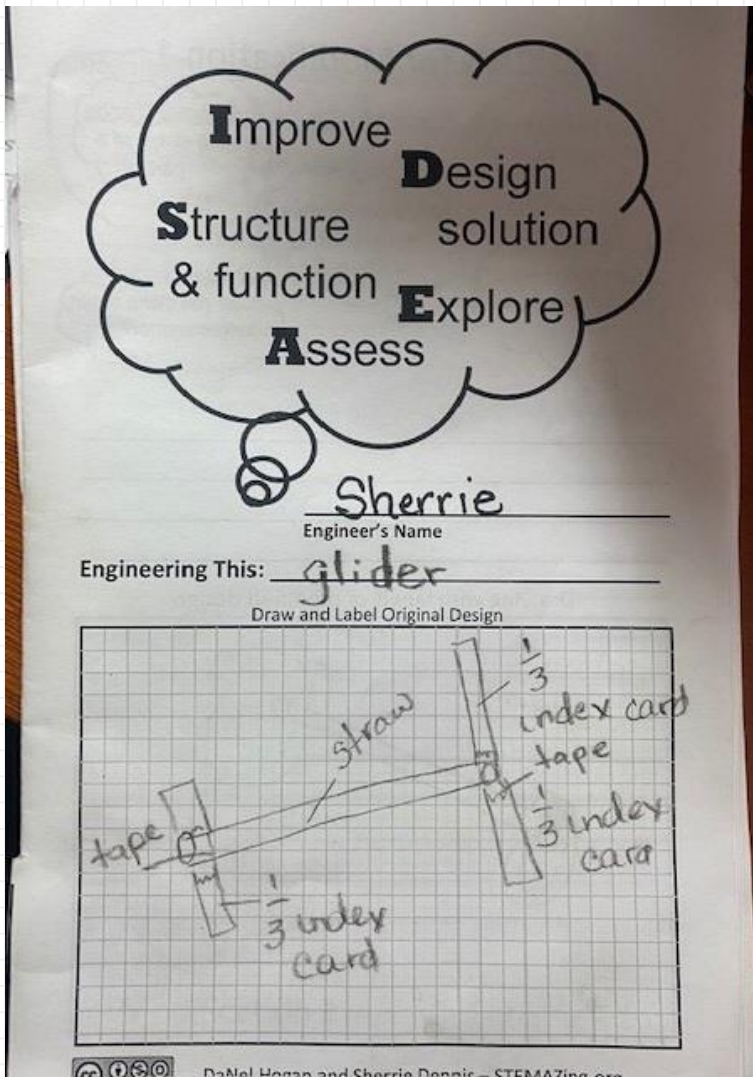 Improve
Design
Structure solution
& function
Explore
Assess
Sherrie
Engineer's Name
Engineering This: glider
Draw and Label Original Design
1/3
index card
straw
tape
tape
1/3 index
card
1/3 index
card
DaNel Hogan and Sherrie Dennis – STEMAZing.org